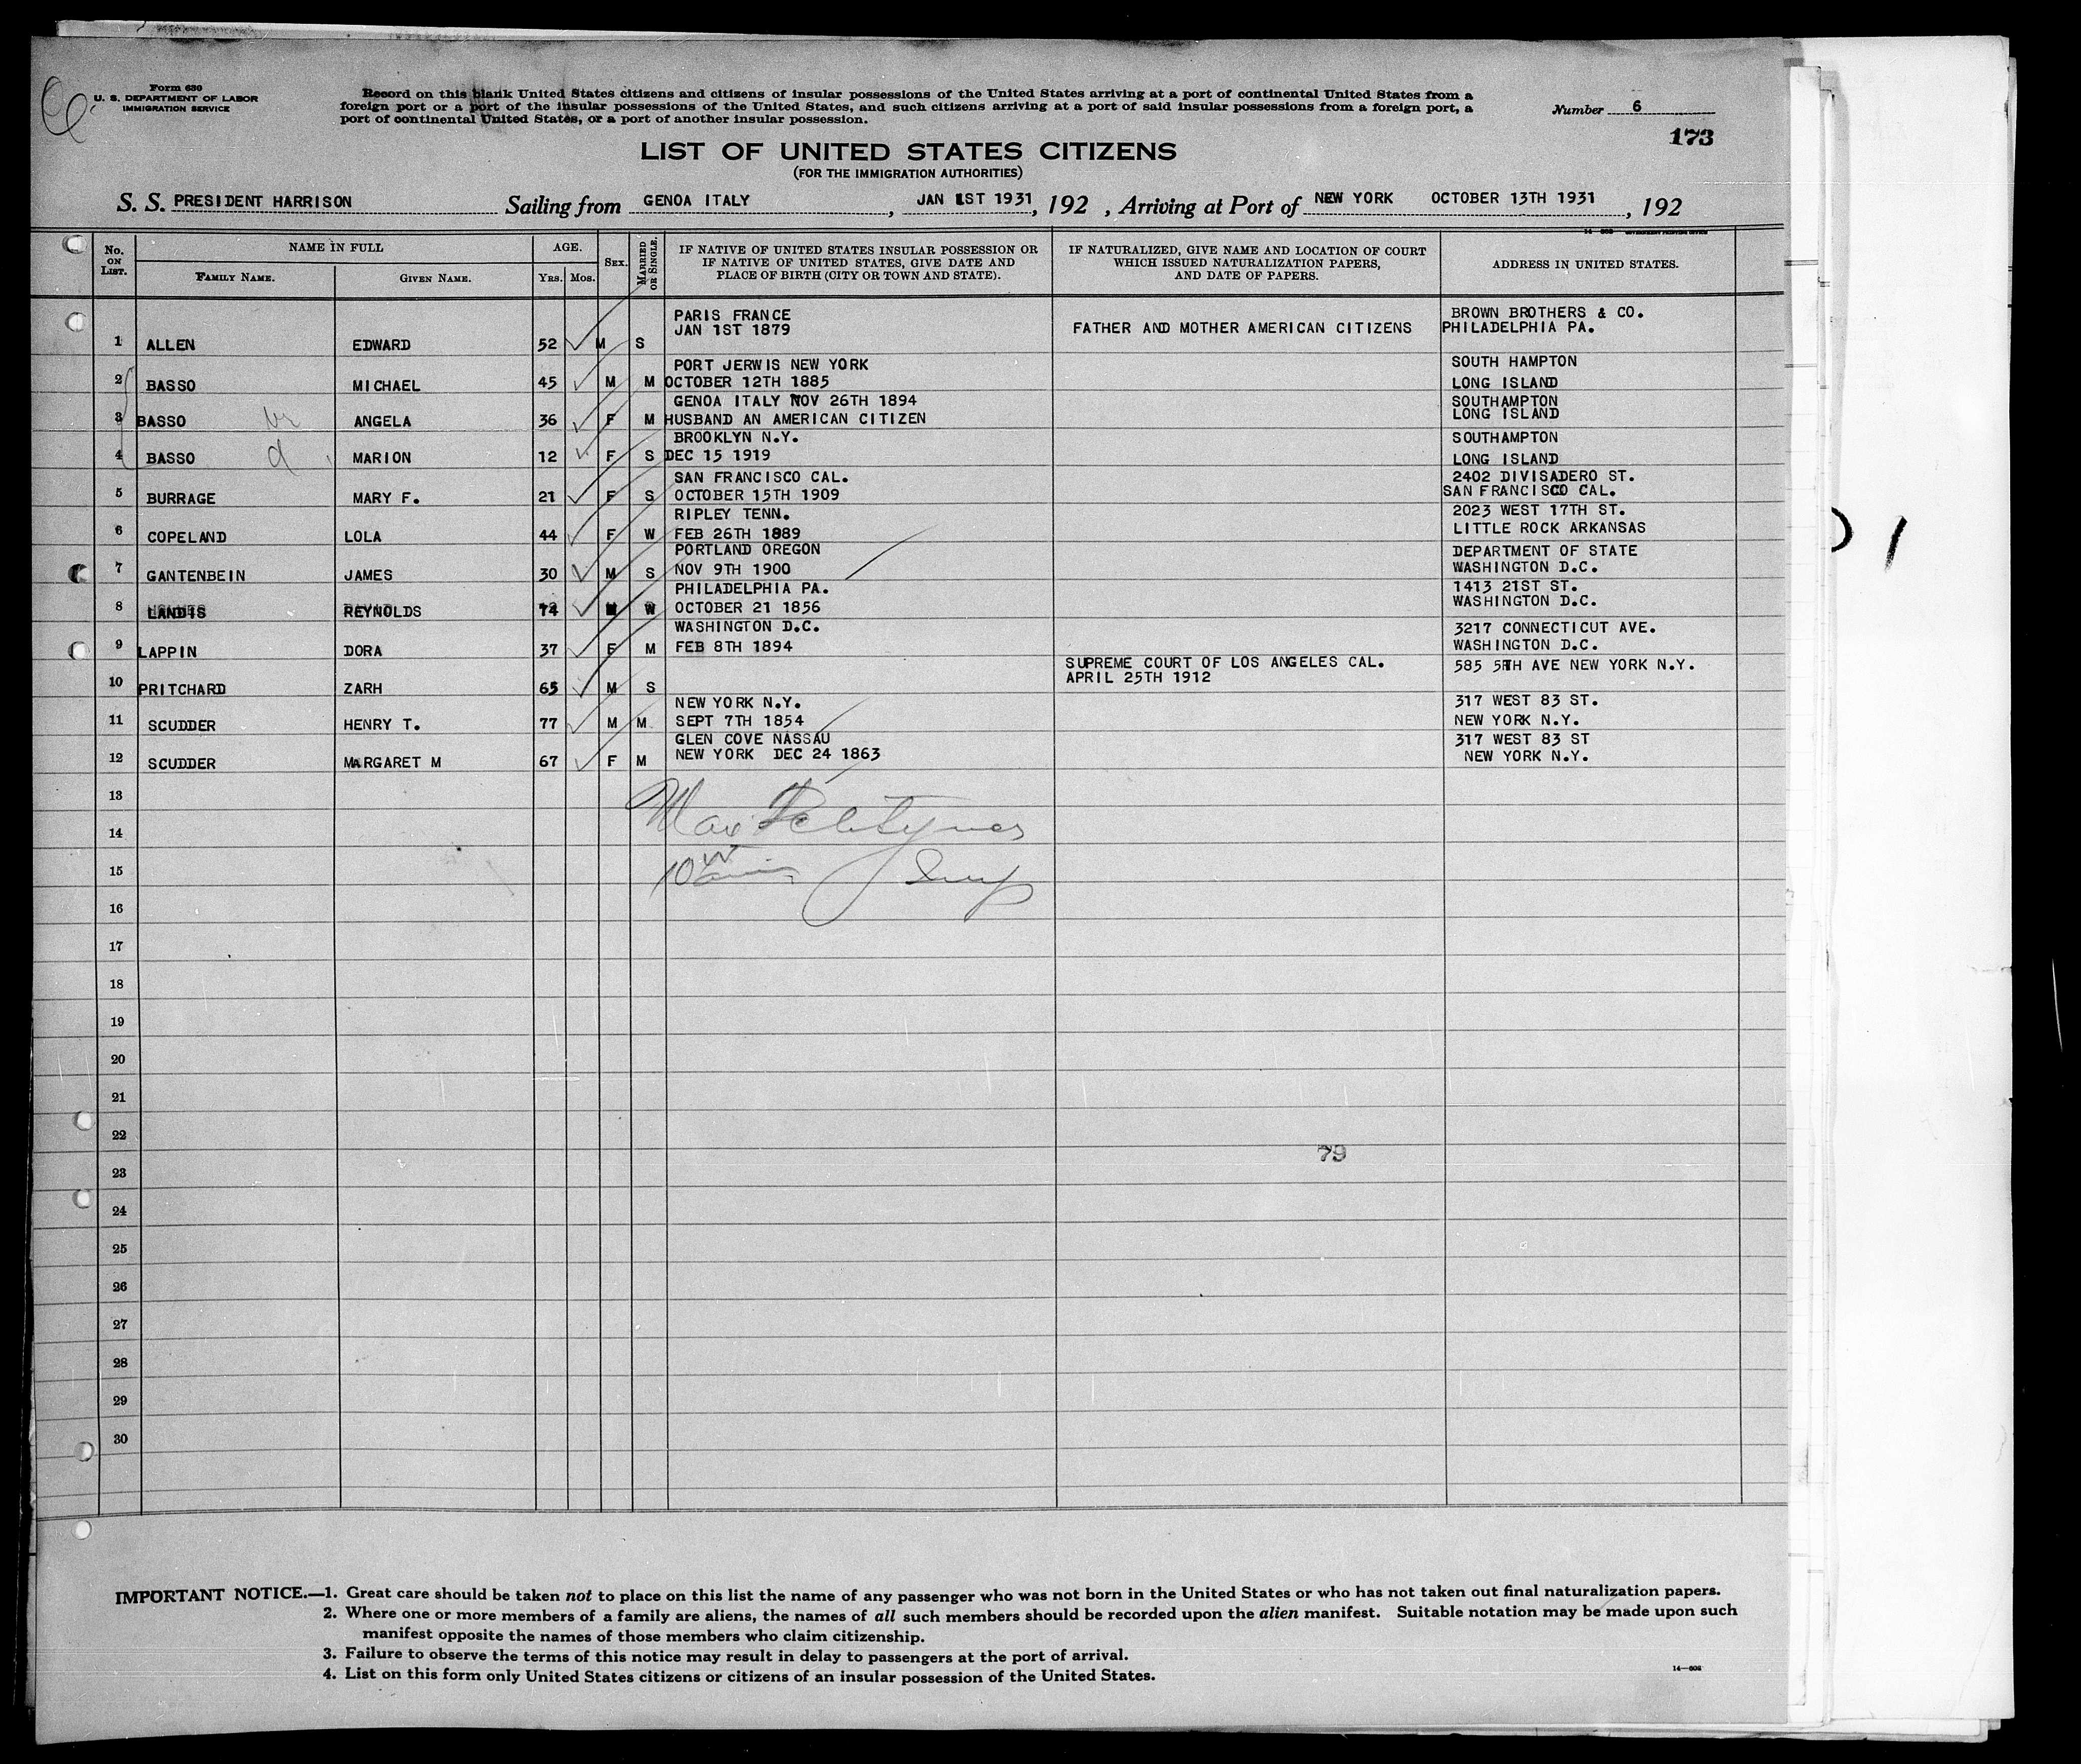 Form 630
U. S. DEPARTMENT OF LABOR
IMMIGRATION SERVICE
Record on this blank United States citizens and citizens of insular possessions of the United States arriving at a port of continental United States from a
foreign port or a port of the insular possessions of the United States, and such citizens arriving at a port of said insular possessions from a foreign port, a
port of continental United States, or a port of another insular possession.
Number 6
173
LIST OF UNITED STATES CITIZENS
(FOR THE IMMIGRATION AUTHORITIES)
S. S. PRESIDENT HARRISON Sailing from GENOA ITALY, JAN 1ST 1931, 192 , Arriving at Port of NEW YORK OCTOBER 13TH 1931, 192
No. ON LIST. NAME IN FULL FAMILY NAME. GIVEN NAME. AGE. YRS. MOS. SEX. MARRIED OR SINGLE. IF NATIVE OF UNITED STATES INSULAR POSSESSION OR IF NATIVE OF UNITED STATES, GIVE DATE AND PLACE OF BIRTH (CITY OR TOWN AND STATE). IF NATURALIZED, GIVE NAME AND LOCATION OF COURT WHICH ISSUED NATURALIZATION PAPERS, AND DATE OF PAPERS. ADDRESS IN UNITED STATES.
PARIS FRANCE BROWN BROTHERS & CO.
1 ALLEN EDWARD 52 M S JAN 1ST 1879 FATHER AND MOTHER AMERICAN CITIZENS PHILADELPHIA PA.
PORT JERWIS NEW YORK SOUTH HAMPTON
2 BASSO MICHAEL 45 M M OCTOBER 12TH 1885 LONG ISLAND
GENOA ITALY NOV 26TH 1894 SOUTHAMPTON
3 BASSO ANGELA 36 F M HUSBAND AN AMERICAN CITIZEN LONG ISLAND
BROOKLYN N.Y. SOUTHAMPTON
4 BASSO d MARION 12 F S DEC 15 1919 LONG ISLAND
SAN FRANCISCO CAL. 2402 DIVISADERO ST.
5 BURRAGE MARY F. 21 F S OCTOBER 15TH 1909 SAN FRANCISCO CAL.
RIPLEY TENN. 2023 WEST 17TH ST.
6 COPELAND LOLA 44 F W FEB 26TH 1889 LITTLE ROCK ARKANSAS
PORTLAND OREGON DEPARTMENT OF STATE
7 GANTENBEIN JAMES 30 M S NOV 9TH 1900 WASHINGTON D.C.
PHILADELPHIA PA. 1413 21ST ST.
8 LANDIS REYNOLDS 74 M W OCTOBER 21 1856 WASHINGTON D.C.
WASHINGTON D.C. 3217 CONNECTICUT AVE.
9 LAPPIN DORA 37 F M FEB 8TH 1894 WASHINGTON D.C.
SUPREME COURT OF LOS ANGELES CAL. 585 5TH AVE NEW YORK N.Y.
10 PRITCHARD ZARH 65 M S APRIL 25TH 1912
NEW YORK N.Y. 317 WEST 83 ST.
11 SCUDDER HENRY T. 77 M M SEPT 7TH 1854 NEW YORK N.Y.
GLEN COVE NASSAU 317 WEST 83 ST
12 SCUDDER MARGARET M 67 F M NEW YORK DEC 24 1863 NEW YORK N.Y.
13
14
15
16
17
18
19
20
21
22
79
23
24
25
26
27
28
29
30
IMPORTANT NOTICE.—1. Great care should be taken not to place on this list the name of any passenger who was not born in the United States or who has not taken out final naturalization papers.
2. Where one or more members of a family are aliens, the names of all such members should be recorded upon the alien manifest. Suitable notation may be made upon such
manifest opposite the names of those members who claim citizenship.
3. Failure to observe the terms of this notice may result in delay to passengers at the port of arrival.
4. List on this form only United States citizens or citizens of an insular possession of the United States.